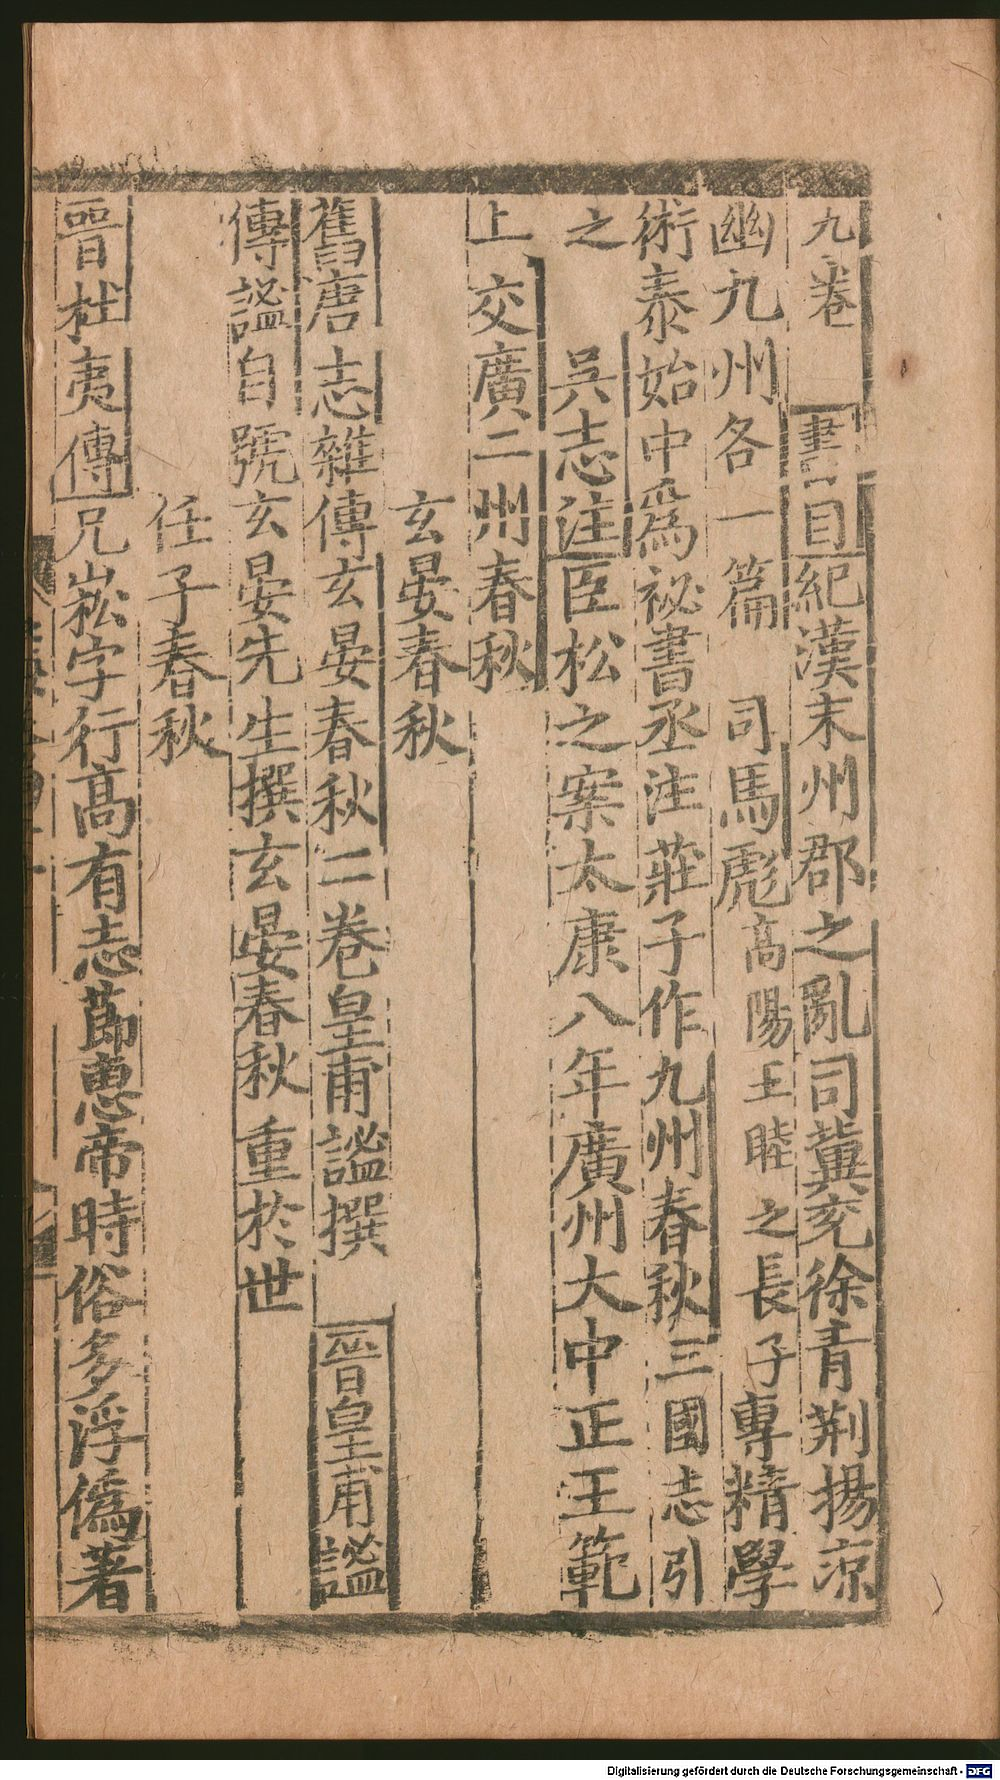 九卷　書目紀漢末州郡之亂司冀兖徐青荆揚凉
幽九州各一篇　司馬彪高陽王睦之長子專精學
術泰始中爲祕書丞注莊子作九州春秋三國志引
之　吳志注臣松之案太康八年廣州大中正王範
上交廣二州春秋
玄晏春秋
舊唐志雜傳玄晏春秋二卷皇甫謐撰　晉皇甫謐
傳謐自號玄晏先生撰玄晏春秋重於世
任子春秋
晉杜夷傳兄崧字行高有志節惠帝時俗多浮僞著
Digitalisierung gefördert durch die Deutsche Forschungsgemeinschaft - DFG